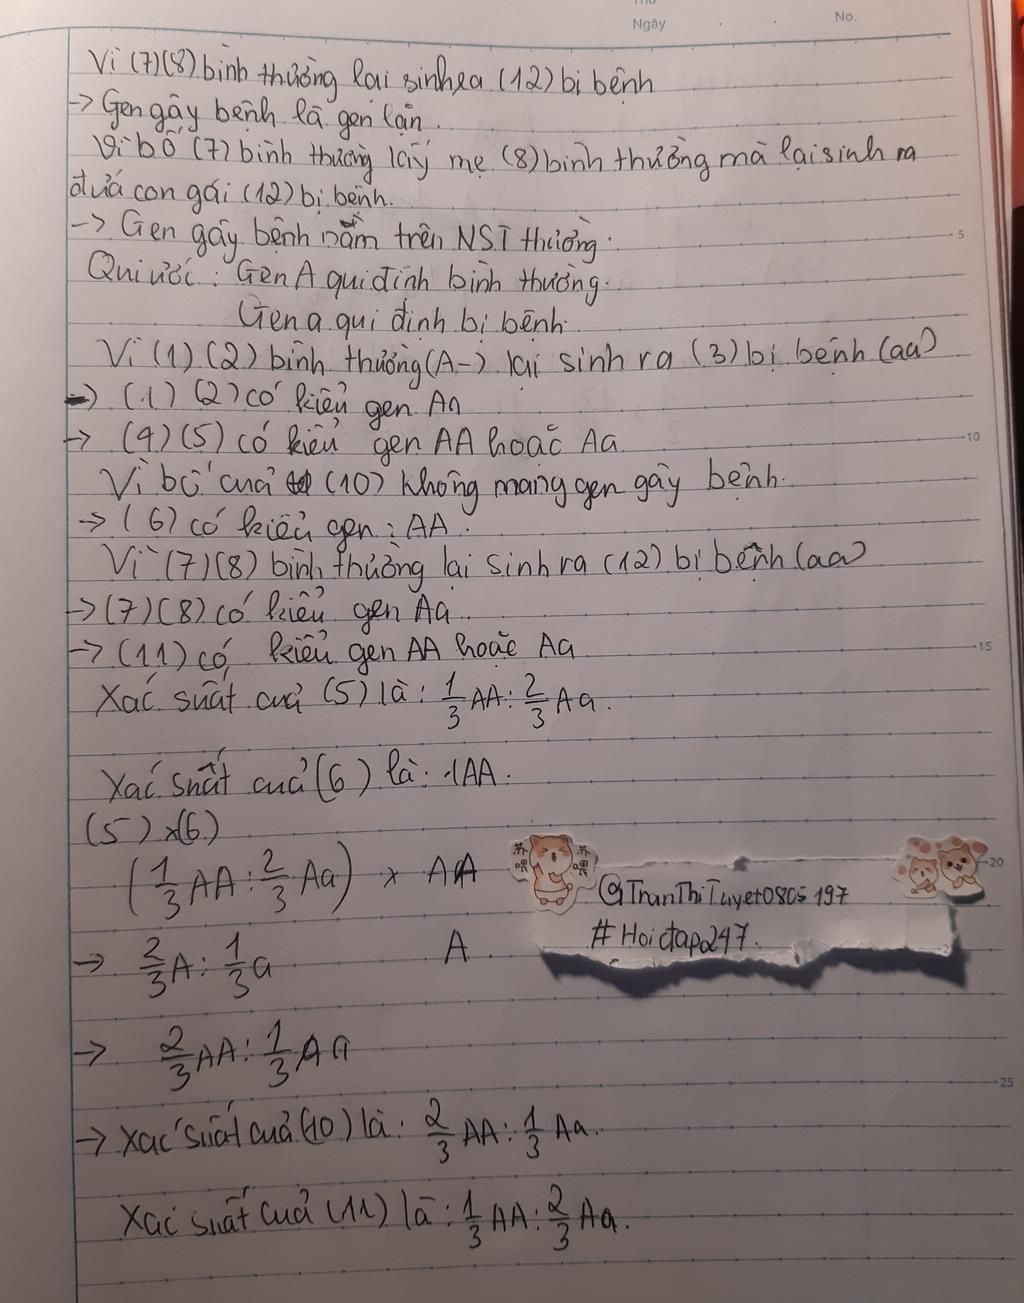 Thứ
Ngày
No.
Vì (7)(8) bình thường lại sinh ra (12) bị bệnh
-> Gen gây bệnh là gen lặn.
Vì bố (7) bình thường lấy mẹ (8) bình thường mà lại sinh ra
đứa con gái (12) bị bệnh.
-> Gen gây bệnh nằm trên NST thường.
Qui ước: Gen A qui định bình thường.
Gen a qui định bị bệnh.
Vì (1) (2) bình thường (A-) lại sinh ra (3) bị bệnh (aa)
-> (1) (2) có kiểu gen Aa
-> (4) (5) có kiểu gen AA hoặc Aa
Vì bố của (10) không mang gen gây bệnh.
-> (6) có kiểu gen: AA.
Vì (7)(8) bình thường lại sinh ra (12) bị bệnh (aa)
-> (7)(8) có kiểu gen Aa
-> (11) có kiểu gen AA hoặc Aa
Xác suất của (5) là: 1/3 AA : 2/3 Aa.
Xác suất của (6) là: 1AA.
(5) x (6)
(1/3 AA : 2/3 Aa) x AA
@TranThiTuyet0805197
#Hoidap247.
-> 2/3 A : 1/3 a A
-> 2/3 AA : 1/3 Aa
-> Xác suất của (10) là: 2/3 AA : 1/3 Aa.
Xác suất của (11) là: 1/3 AA : 2/3 Aa.
5
10
15
20
25